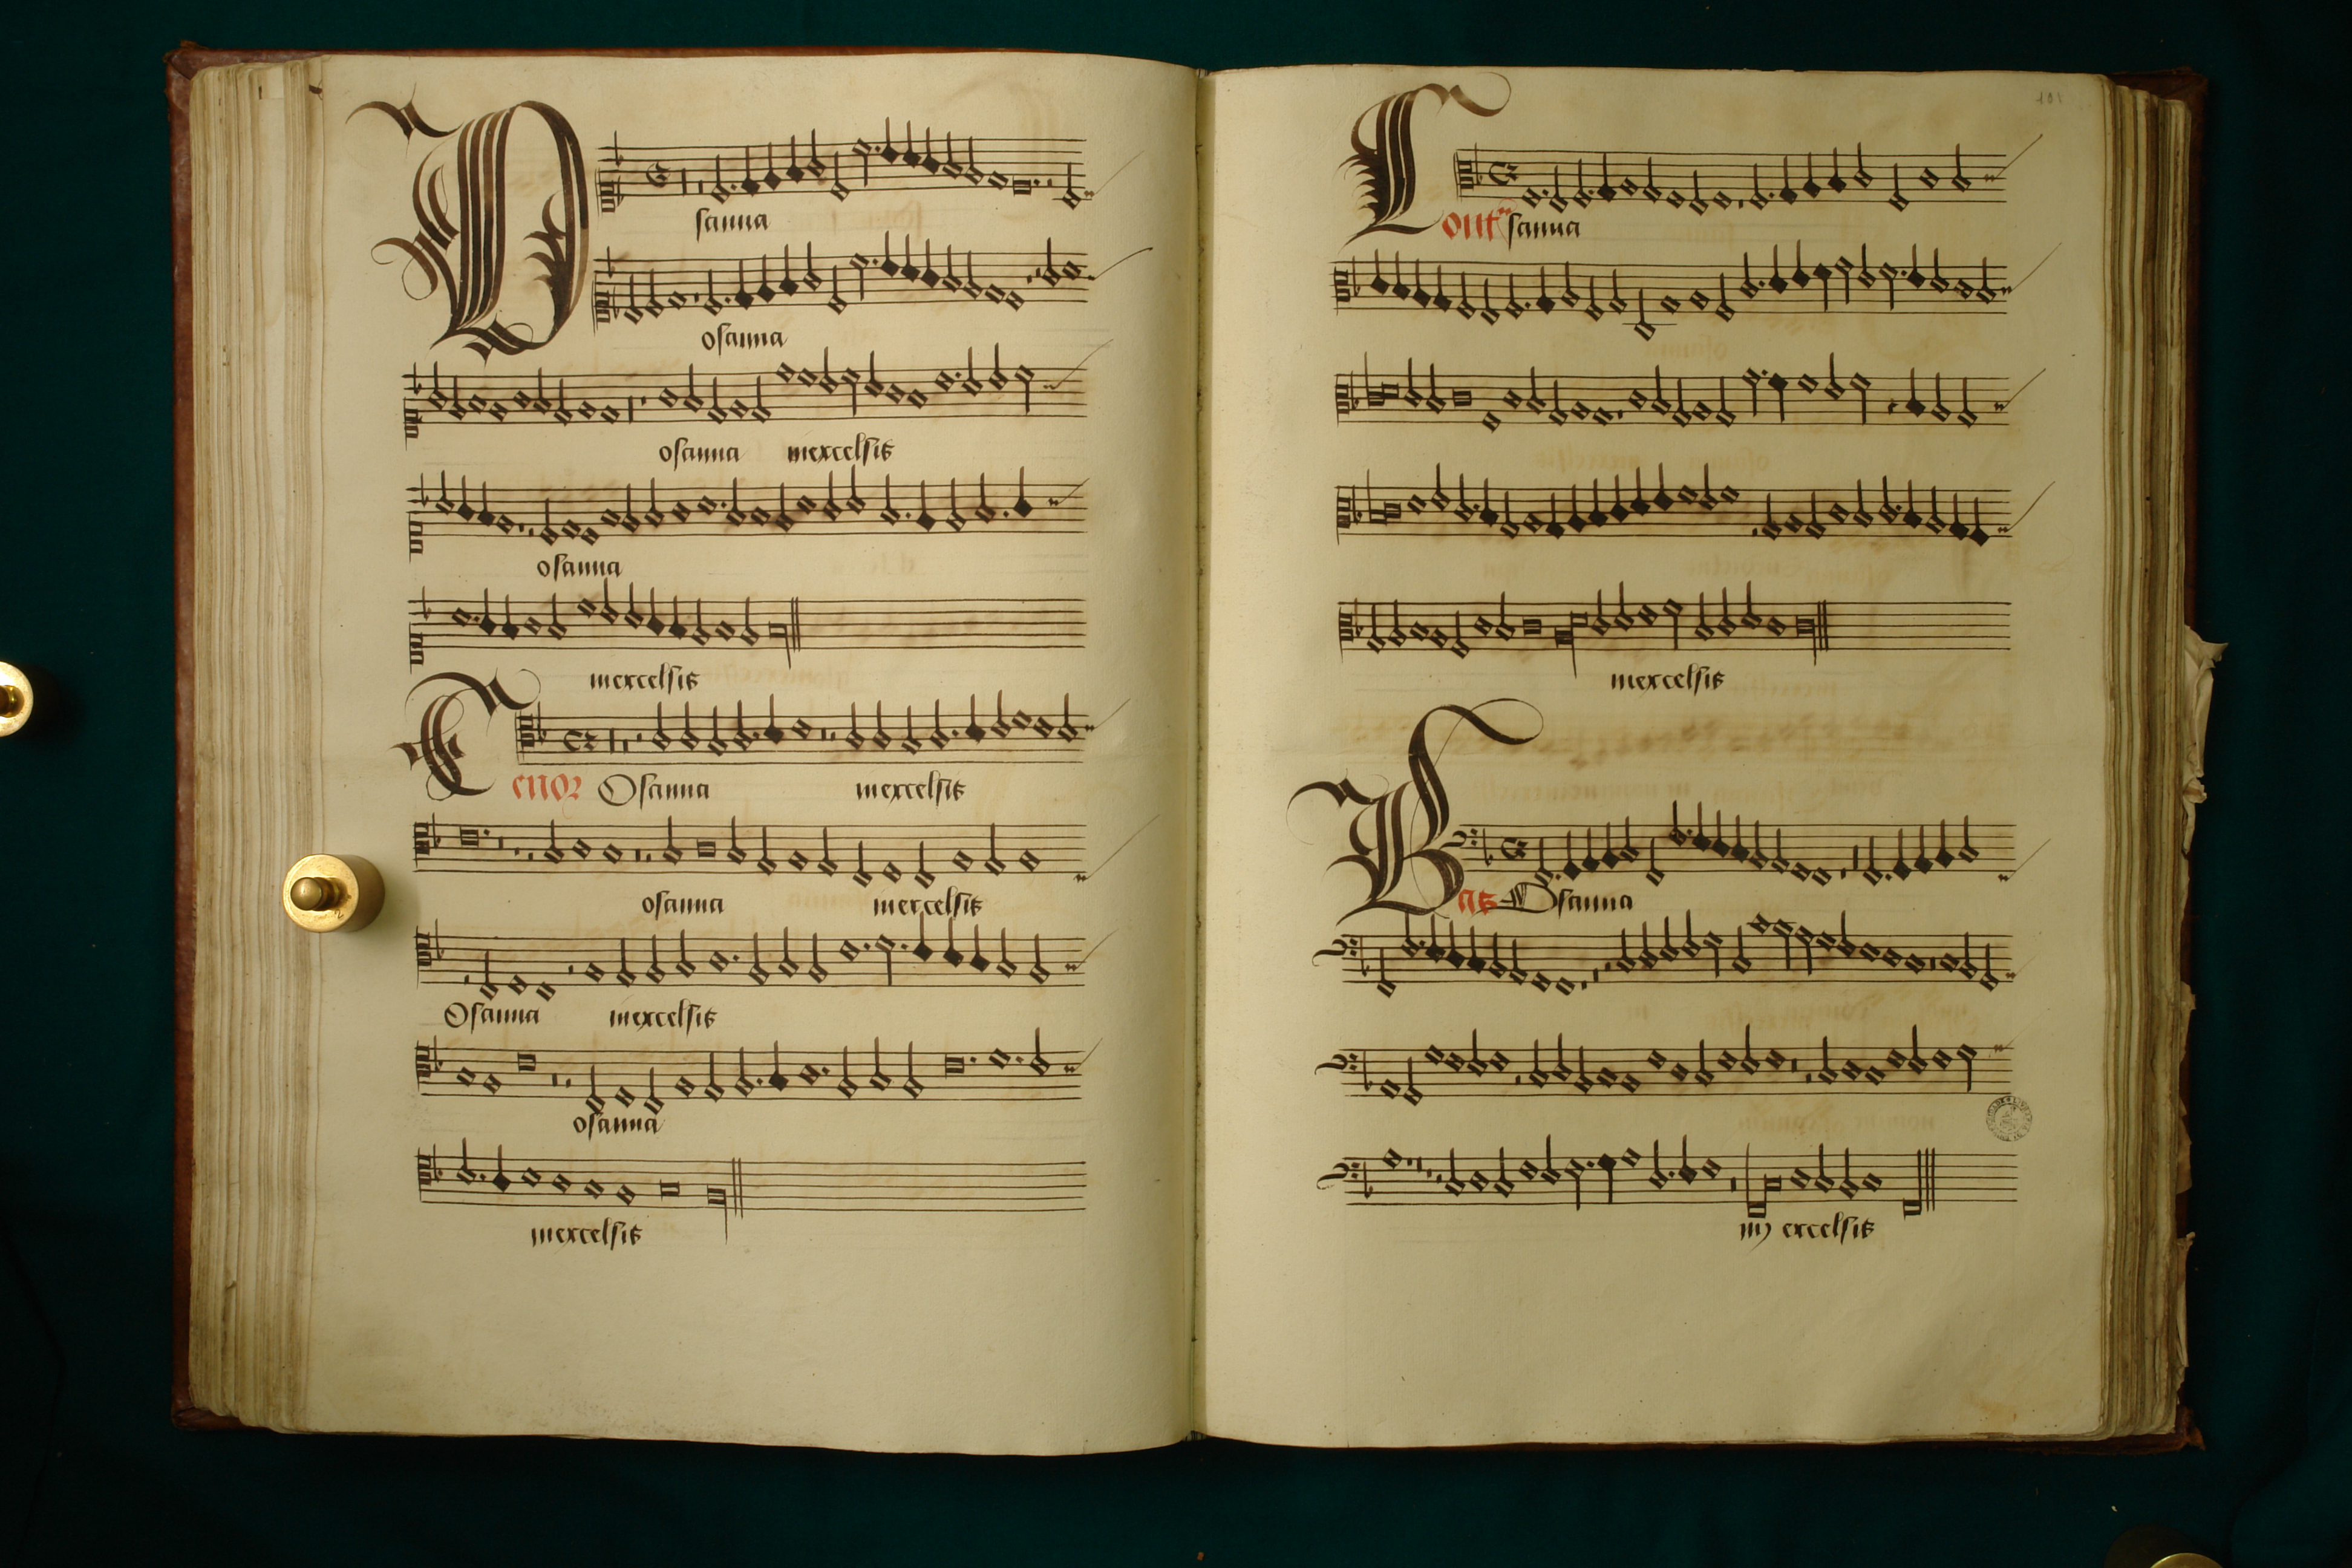 Osanna
osanna
osanna inexcelsis
osanna
inexcelsis
Tenor Osanna inexcelsis
osanna inexcelsis
Osanna inexcelsis
osanna
inexcelsis
101
Contra sanna
inexcelsis
Bas Osanna
in excelsis